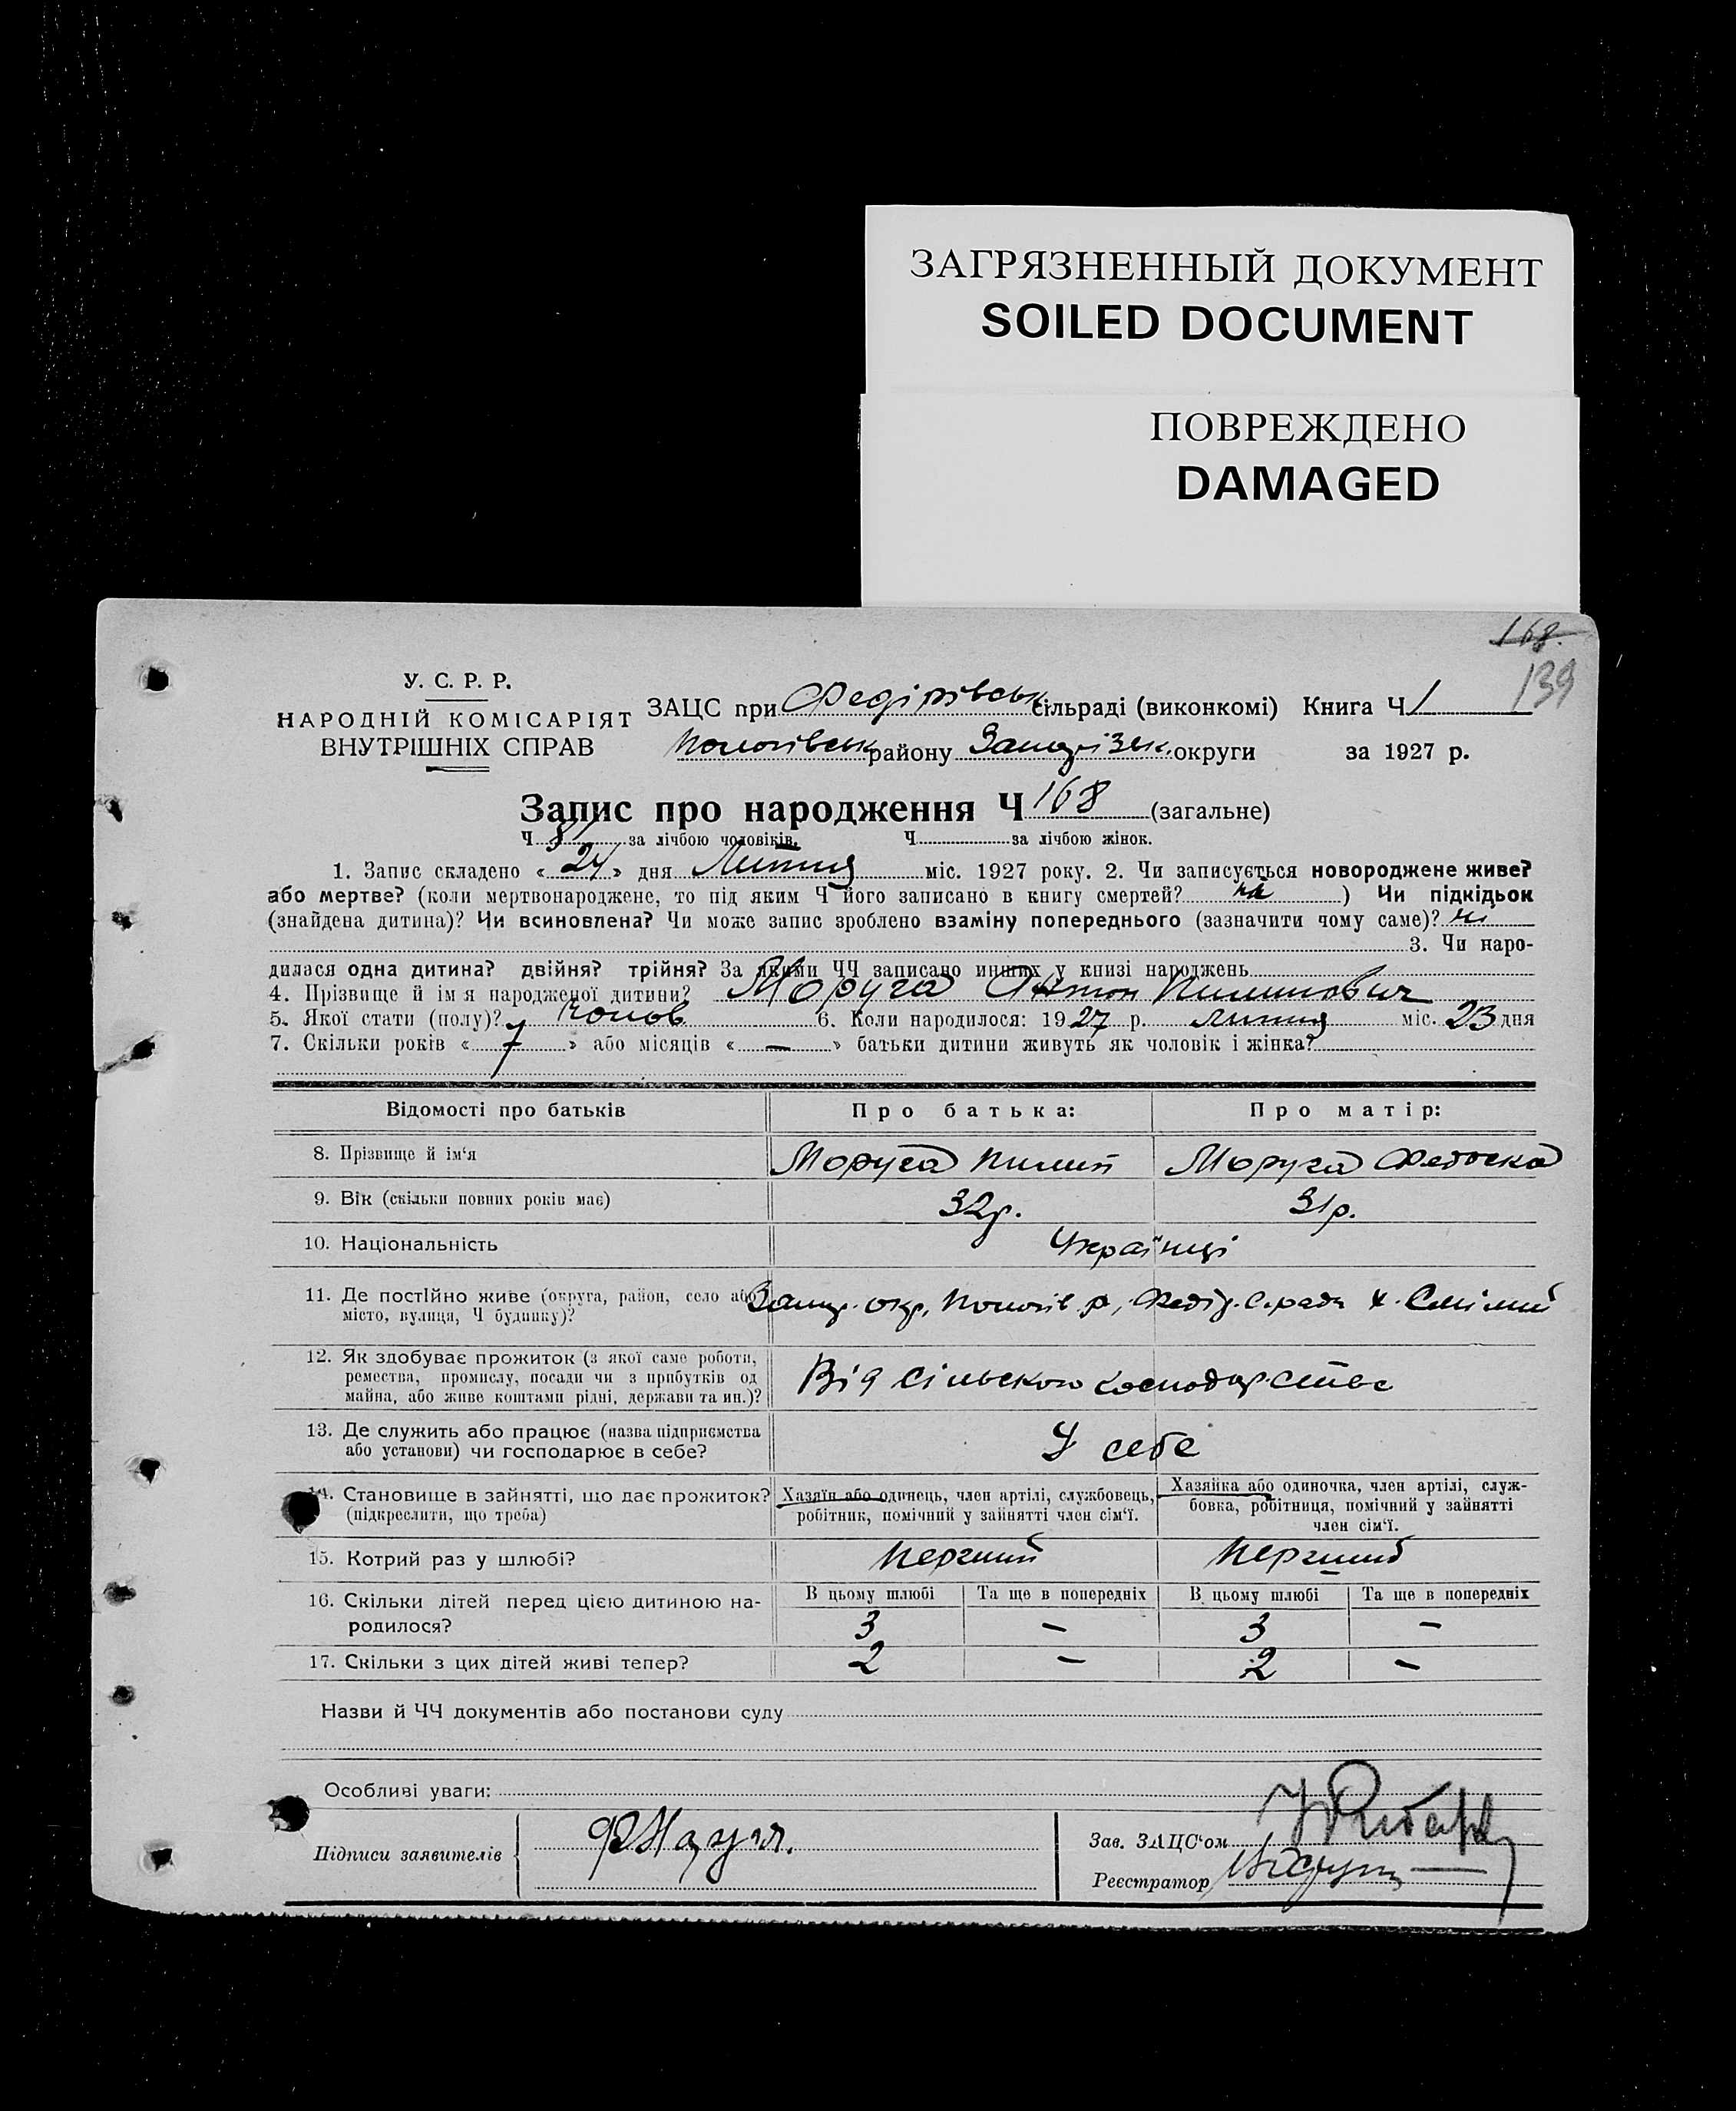 ЗАГРЯЗНЕННЫЙ ДОКУМЕНТ
SOILED DOCUMENT
ПОВРЕЖДЕНО
DAMAGED
168.
139
У. С. Р. Р.
НАРОДНІЙ КОМІСАРІЯТ
ВНУТРІШНІХ СПРАВ
ЗАЦС при Федірівськ сільраді (виконкомі) Книга Ч 1
Пологівськ району Запорізьк. округи за 1927 р.
Запис про народження Ч 168 (загальне)
Ч 81 за лічбою чоловіків. Ч за лічбою жінок.
1. Запис складено « 24 » дня Липня міс. 1927 року. 2. Чи записується новороджене живе?
або мертве? (коли мертвонароджене, то під яким Ч його записано в книгу смертей? ні ) Чи підкідьок
(знайдена дитина)? Чи всиновлена? Чи може запис зроблено взаміну попереднього (зазначити чому саме)? ні
3. Чи наро-
дилася одна дитина? двійня? трійня? За якими ЧЧ записано инших у книзі народжень
4. Прізвище й ім я народженої дитини? Моруга Антон Пилипович
5. Якої стати (полу)? чолов. 6. Коли народилося: 1927 р. липня міс. 23 дня
7. Скільки років « 7 » або місяців « — » батьки дитини живуть як чоловік і жінка?
Відомості про батьків Про батька: Про матір:
8. Прізвище й ім'я Моруга Пилип Моруга Федоска
9. Вік (скільки повних років має) 32р. 31р.
10. Національність Українці
11. Де постійно живе (округа, район, село або Запор. окр, Пологів. р, Федір. С.рада х. Смілий
місто, вулиця, Ч будинку)?
12. Як здобуває прожиток (з якої саме роботи,
ремества, промислу, посади чи з прибутків од Від сільського господарства
майна, або живе коштами рідні, держави та ин.)?
13. Де служить або працює (назва підприємства
або установи) чи господарює в себе? У себе
14. Становище в зайнятті, що дає прожиток? Хазяїн або одинець, член артілі, службовець, Хазяйка або одиночка, член артілі, служ-
(підкреслити, що треба) робітник, помічний у зайнятті член сім'ї. бовка, робітниця, помічний у зайнятті
член сім'ї.
15. Котрий раз у шлюбі? Перший Перший
16. Скільки дітей перед цією дитиною на- В цьому шлюбі Та ще в попередніх В цьому шлюбі Та ще в попередніх
родилося? 3 — 3 —
17. Скільки з цих дітей живі тепер? 2 — 2 —
Назви й ЧЧ документів або постанови суду
Особливі уваги:
Підписи заявителів
Зав. ЗАЦС'ом
Реєстратор